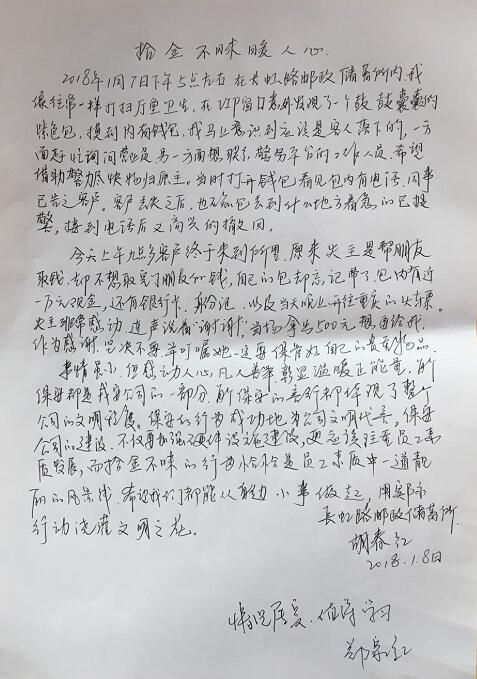 拾金不昧暖人心.
2018年1月7日下午5点左右在长虹路邮政储蓄所内,我
像往常一样打扫厅里卫生,在VIP窗口意外发现了一个鼓鼓囊囊的
紫色包,摸到内有钱包,我马上意识到应该是客人落下的,一方
面赶忙询问营业员另一方面想联系警务平台的工作人员,希望
借助警力尽快物归原主。当时打开钱包看见包内有电话,同事
已告之客户。客户丢失之后,也不知包丢到什么地方着急的已报
警,接到电话后又高兴的撤回。
今天上午九点多客户终于来到所里,原来失主是帮朋友
取钱,却不想取完了朋友的钱,自己的包却忘记带了,包内有近
一万元现金,还有银行卡、身份证,以及当天晚上开往重庆的火车票。
失主非常感动,连声说着"谢谢",当场拿出500元想要给我,
作为感谢,坚决不要并叮嘱她一定要保管好自己的贵重物品。
事情虽小,但感动人心,凡人善举,彰显温暖正能量,所
保安都是我安公司的一部分,所保安的言行都体现了整个
公司的文明程度。保安的行为成功地为公司文明代言。保安
公司的建设,不仅要加强硬件设施建设,更应该注重员工素
质发展,而拾金不昧的行为恰恰是员工素质中一道靓
丽的风景线。希望我们都能从身边小事做起,用实际
行动浇灌文明之花。
长虹路邮政储蓄所.
胡春红
2018.1.8日
情况属实,值得学习